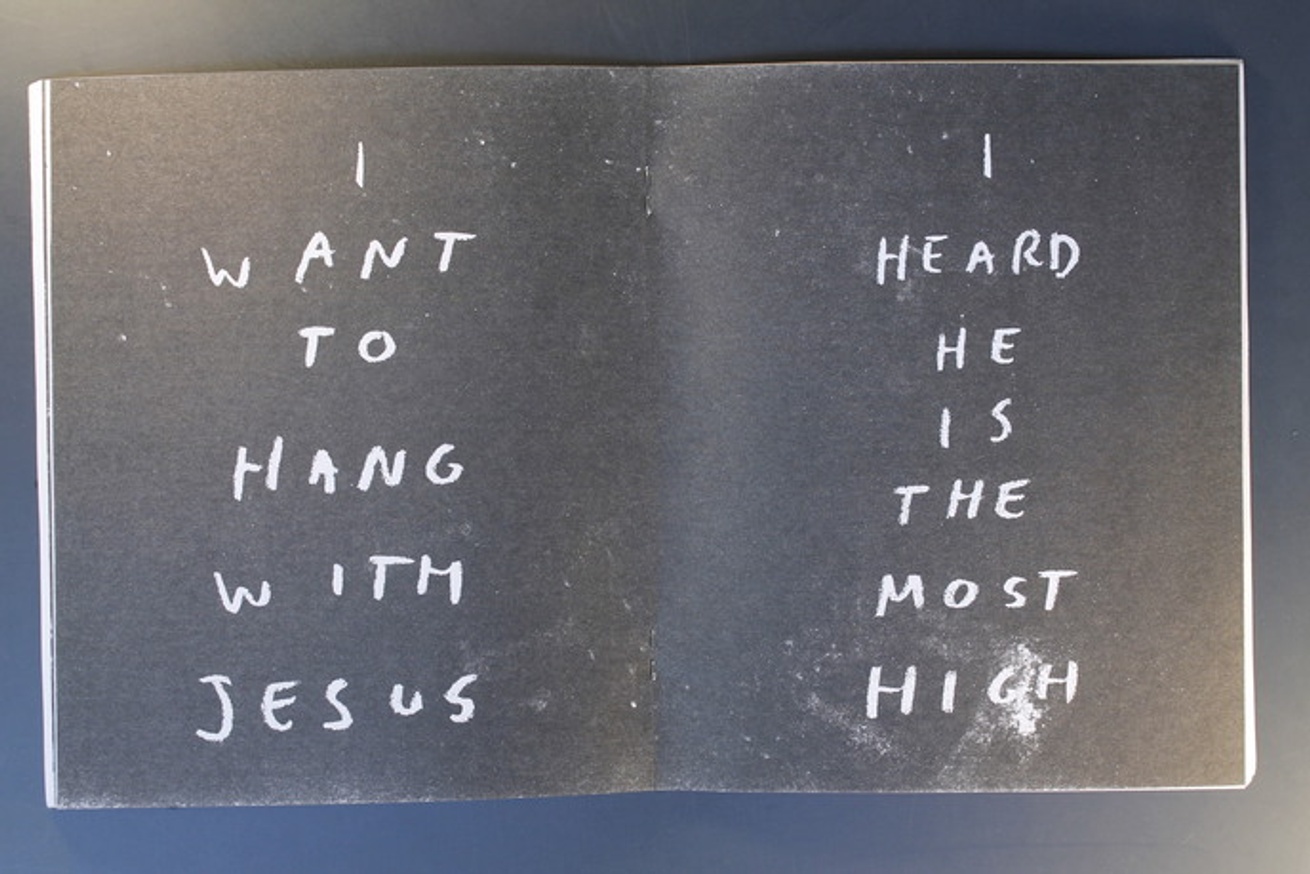 I
WANT
TO
HANG
WITH
JESUS
I
HEARD
HE
IS
THE
MOST
HIGH